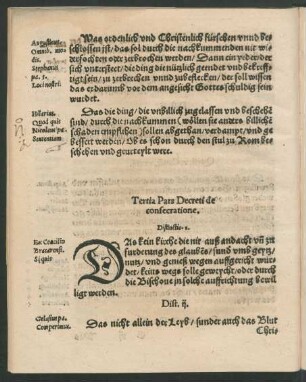 Was ordenlich vnd Christenlich fürsehen vnnd be-
schlossen ist / das sol durch die nachkummenden nit wi-
dersochten oder zerbrochen werden / Dann ein yeder der
sich vnterstet / die ding die nützlich geendet vnd bekreff-
tigt sein / zu zerbrechen vnnd zubeflecken / der soll wissen
das er darumb vor dem angesicht Gottes schuldig sein
wurdet.
Das die ding / die vnbillich zugelassen vnd beschehē
sind / durch die nachkummen (wöllen sie anders billiche
schaden empflichen) sollen abgethan / verdampt / vnd ge
bessert werden / Ob es schon durch den stul zu Rom be-
schehen vnd geurteylt were.
Hilarius.
Quod quis
Nicolaus pa.
Sententiam.
Tertia Pars Decreti de
consecratione.
Distinctio. 1.
Ex Concilio
Bracarensi.
Si quis
DAs kein kirche die nit auß andacht vn̄ zu
furderung des glaubēs / sund vmb geytz /
nutz / vnd genieß wegen auffgericht wur-
det / keins wegs solle geweycht / oder durch
die Bischoue jn solche auffrichtung bewil
ligt werden.
Dist. ij.
Gelasius pa.
Comperimus.
Das nicht allein der Leyb / sunder auch das Blut
Chris-